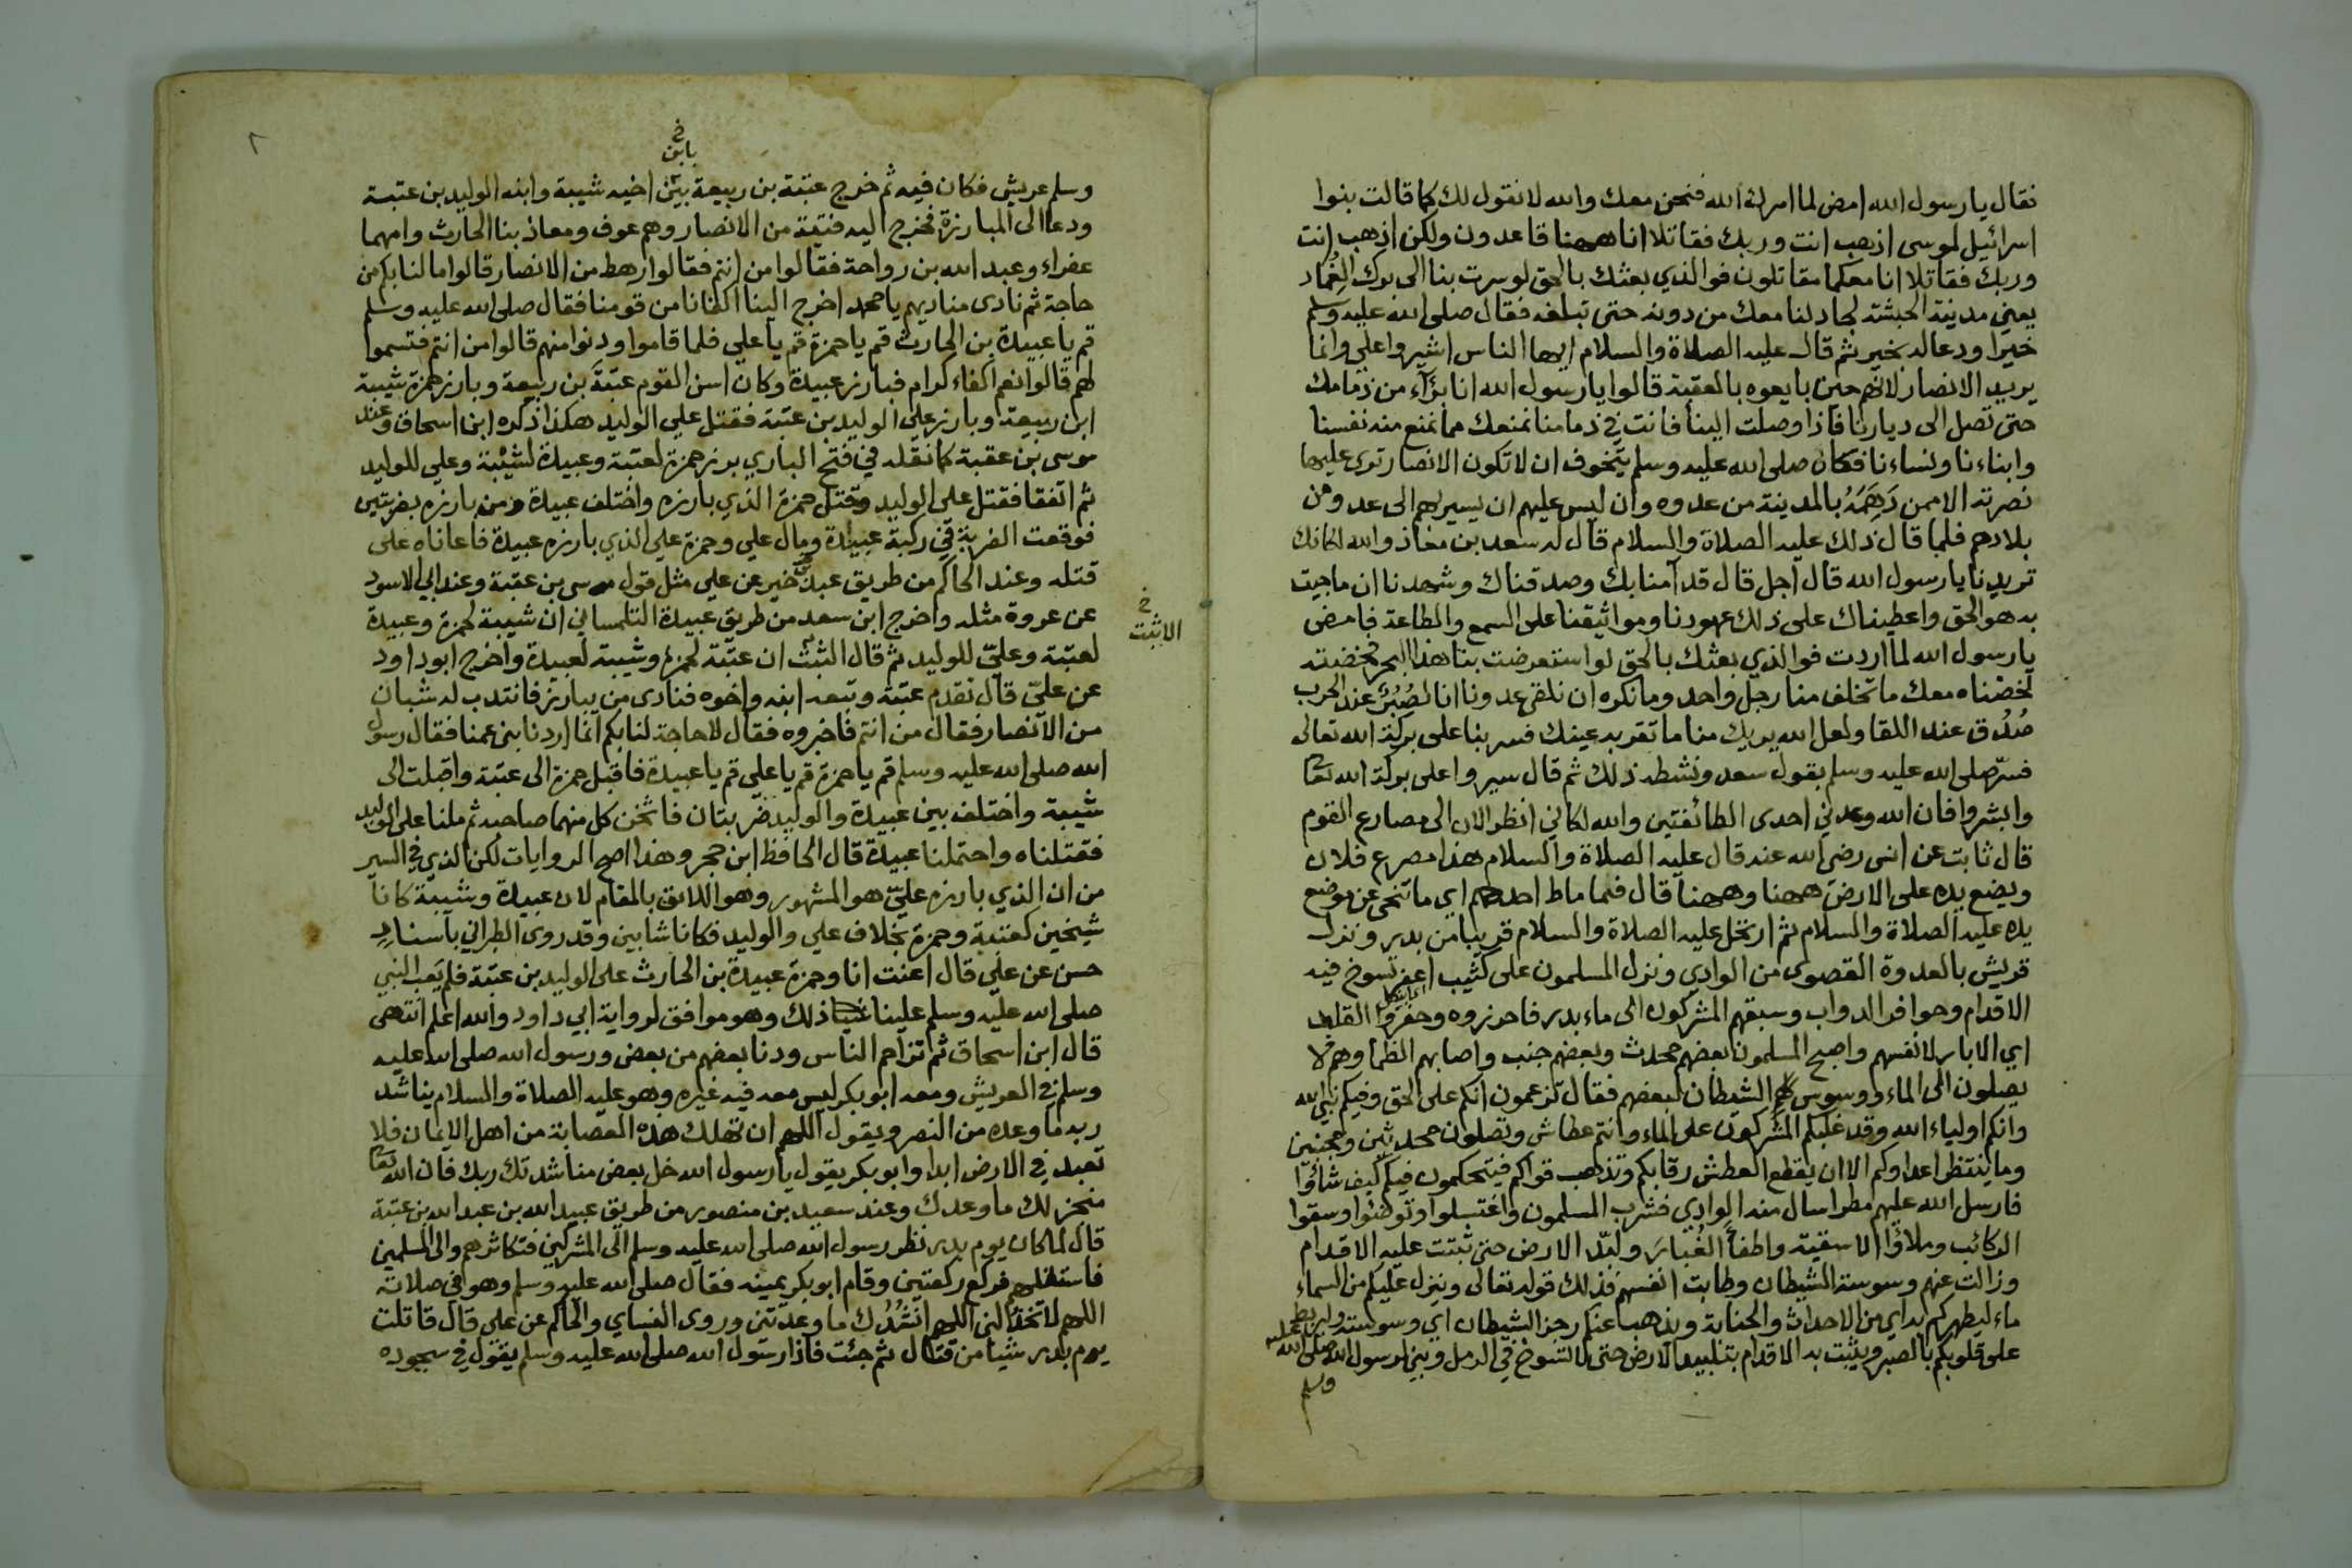 فقال يارسول الله امض لما امرك الله فنحن معك والله لا نقول لك كما قالت بنوا
اسرائيل لموسى اذهب انت وربك فقاتلا انا ههنا قاعدون ولكن اذهب انت
وربك فقاتلا انا معكما مقاتلون فوالذي بعثك بالحق لو سرت بنا الى برك الغُمَاد
يعني مدينة الحبشة لجادلنا معك من دونه حتى تبلغه فقال صلى الله عليه وسلم
خيرا ودعا له بخير ثم قال عليه الصلاة والسلام ايها الناس اشيروا علي وانما
يريد الانصار لانهم حين بايعوه بالعقبة قالوا يارسول الله انا بُرَآء من ذمامك
حتى تصل الى ديارنا فاذا وصلت الينا فانت في ذمامنا نمنعك مما نمنع منه نفسنا
وابناءنا ونساءنا فكان صلى الله عليه وسلم يتخوف ان لا تكون الانصار ترى عليها
نصرته الا ممن دَهِمَهُ بالمدينة من عدوه وان ليس عليهم ان يسير بهم الى عدو من
بلادهم فلما قال ذلك عليه الصلاة والسلام قال له سعد بن معاذ والله لكانك
تريدنا يارسول الله قال اجل قال قد آمنا بك وصدقناك وشهدنا ان ما جيت
به هو الحق واعطيناك على ذلك عهودنا ومواثيقنا على السمع والطاعة فامض
يارسول الله لما اردت فوالذي بعثك بالحق لو استعرضت بنا هذا البحر فخضته
لخضناه معك ما تخلف منا رجل واحد وما نكره ان نلقى عدونا انا لصُبُرٌ عند الحرب
صُدُق عند اللقا ولعل الله يريك منا ما تقر به عينك فسر بنا على بركة الله تعالى
فسرّ صلى الله عليه وسلم بقول سعد ونشطه ذلك ثم قال سيروا على بركة الله تعا
وابشروا فان الله وعدني احدى الطائفتين والله لكاني انظر الان الى مصارع القوم
قال ثابت عن انس رضي الله عنه قال عليه الصلاة والسلام هذا مصرع فلان
ويضع يده على الارض ههنا وههنا قال فما ماط احدهم اي ما تنحى عن موضع
يده عليه الصلاة والسلام ثم ارتحل عليه الصلاة والسلام قريبا من بدر ونزل
قريش بالعدوة القصوى من الوادي ونزل المسلمون على كثيب اعفر تسوخ فيه
الاقدام وحوافر الدواب وسبقهم المشركون الى ماء بدر فاحرزوه وحفروا القلب
اي الابار لانفسهم واصبح المسلمون بعضهم محدث وبعضهم جنب واصابهم الظما وهم لا
يصلون الى الماء ووسوس لهم الشيطان لبعضهم فقال تزعمون انكم على الحق وفيكم نبي الله
وانكم اولياء الله وقد غلبكم المشركون على الماء وانتم عطاش وتصلون محدثين ومجنبين
وما ينتظر اعداوكم الا ان يقطع العطش رقابكم وتذهب قواكم فيتحكمون فيكم كيف شاؤا
فارسل الله عليهم مطرا سال منه الوادي فشرب المسلمون واغتسلوا وتوضئوا وسقوا
الركائب وملاؤا الاسقية واطفأ الغُبَارَ ولبّد الارض حتى ثبتت عليه الاقدام
وزالت عنهم وسوسة الشيطان وطابت انفسهم فذلك قوله تعالى وينزل عليكم من السماء
ماء ليطهركم به اي من الاحداث والجنابة ويذهب عنكم رجز الشيطان اي وسوسته وليربط
على قلوبكم بالصبر ويثبت به الاقدام بتلبيد الارض حتى لا تسوخ في الرمل وبني لرسول الله صلى الله عليه
وسلم
٢
خ
بابن
وسلم عريش فكان فيه ثم خرج عتبة بن ربيعة بين اخيه شيبة وابنه الوليد بن عتبة
ودعا الى المبارزة فخرج اليه فتية من الانصار وهم عوف ومعاذ بنا الحارث وامهما
عفراء وعبد الله بن رواحة فقالوا من انتم فقالوا رهط من الانصار قالوا ما لنا بكم من
حاجة ثم نادى مناديهم يا محمد اخرج الينا اكفانا من قومنا فقال صلى الله عليه وسلم
قم يا عبيدة بن الحارث قم يا حمزة قم يا علي فلما قاموا ودنوا منهم قالوا من انتم فتسموا
لهم قالوا نعم اكفاء كرام فبارز عبيدة وكان اسن القوم عتبة بن ربيعة وبارز حمزة شيبة
ابن ربيعة وبارز علي الوليد بن عتبة فقتل علي الوليد هكذا ذكره ابن اسحاق وعند
موسى بن عقبة كما نقله في فتح الباري برز حمزة لعتبة وعبيدة لشيبة وعلي للوليد
ثم اتفقا فقتل علي الوليد وقتل حمزة الذي بارزه واختلف عبيدة ومن بارزه بضربتين
فوقعت الضربة في ركبة عبيدة ومال علي وحمزة على الذي بارزه عبيدة فاعاناه على
قتله وعند الحاكم من طريق عبد خير عن علي مثل قول موسى بن عقبة وعند ابي الاسود
عن عروة مثله واخرج ابن سعد من طريق عبيدة التلمساني ان شيبة لحمزة وعبيدة
خ
الاثبت
لعتبة وعليّ للوليد ثم قال الثبت ان عتبة لحمزة وشيبة لعبيدة واخرج ابو داود
عن عليّ قال تقدم عتبة وتبعه ابنه واخوه فنادى من يبارز فانتدب له شبان
من الانصار فقال من انتم فاخبروه فقال لا حاجة لنا بكم انما اردنا بني عمنا فقال رسول
الله صلى الله عليه وسلم قم يا حمزة قم يا علي قم يا عبيدة فاقبل حمزة الى عتبة واقبلت الى
شيبة واختلف بين عبيدة والوليد ضربتان فاثخن كل منهما صاحبه ثم ملنا على الوليد
فقتلناه واحتملنا عبيدة قال الحافظ ابن حجر وهذا اصح الروايات لكن الذي في السير
من ان الذي بارزه عليّ هو المشهور وهو اللائق بالمقام لان عبيدة وشيبة كانا
شيخين كعتبة وحمزة بخلاف علي والوليد فكانا شابين وقد روى الطبراني باسنادٍ
حسن عن علي قال اعنت انا وحمزة عبيدة بن الحارث على الوليد بن عتبة فلم يَعِب النبي
صلى الله عليه وسلم علينا ذلك وهو موافق لرواية ابي داود والله اعلم انتهى
قال ابن اسحاق ثم تزاحم الناس ودنا بعضهم من بعض ورسول الله صلى الله عليه
وسلم في العريش ومعه ابو بكر ليس معه فيه غيره وهو عليه الصلاة والسلام يناشد
ربه ما وعده من النصر ويقول اللهم ان تهلك هذه العصابة من اهل الايمان فلا
تعبد في الارض ابدا وابو بكر يقول يا رسول الله خل بعض مناشدتك ربك فان الله تعا
منجز لك ما وعدك وعند سعيد بن منصور من طريق عبيد الله بن عبد الله بن عتبة
قال لما كان يوم بدر نظر رسول الله صلى الله عليه وسلم الى المشركين فتكاثرهم والى المسلمين
فاستقلهم فركع ركعتين وقام ابو بكر يمينه فقال صلى الله عليه وسلم وهو في صلاته
اللهم لا تخذلني اللهم انشُدُك ما وعدتني وروى النساي والحاكم عن علي قال قاتلت
يوم بدر شيئا من قتال ثم جئت فاذا رسول الله صلى الله عليه وسلم يقول في سجوده